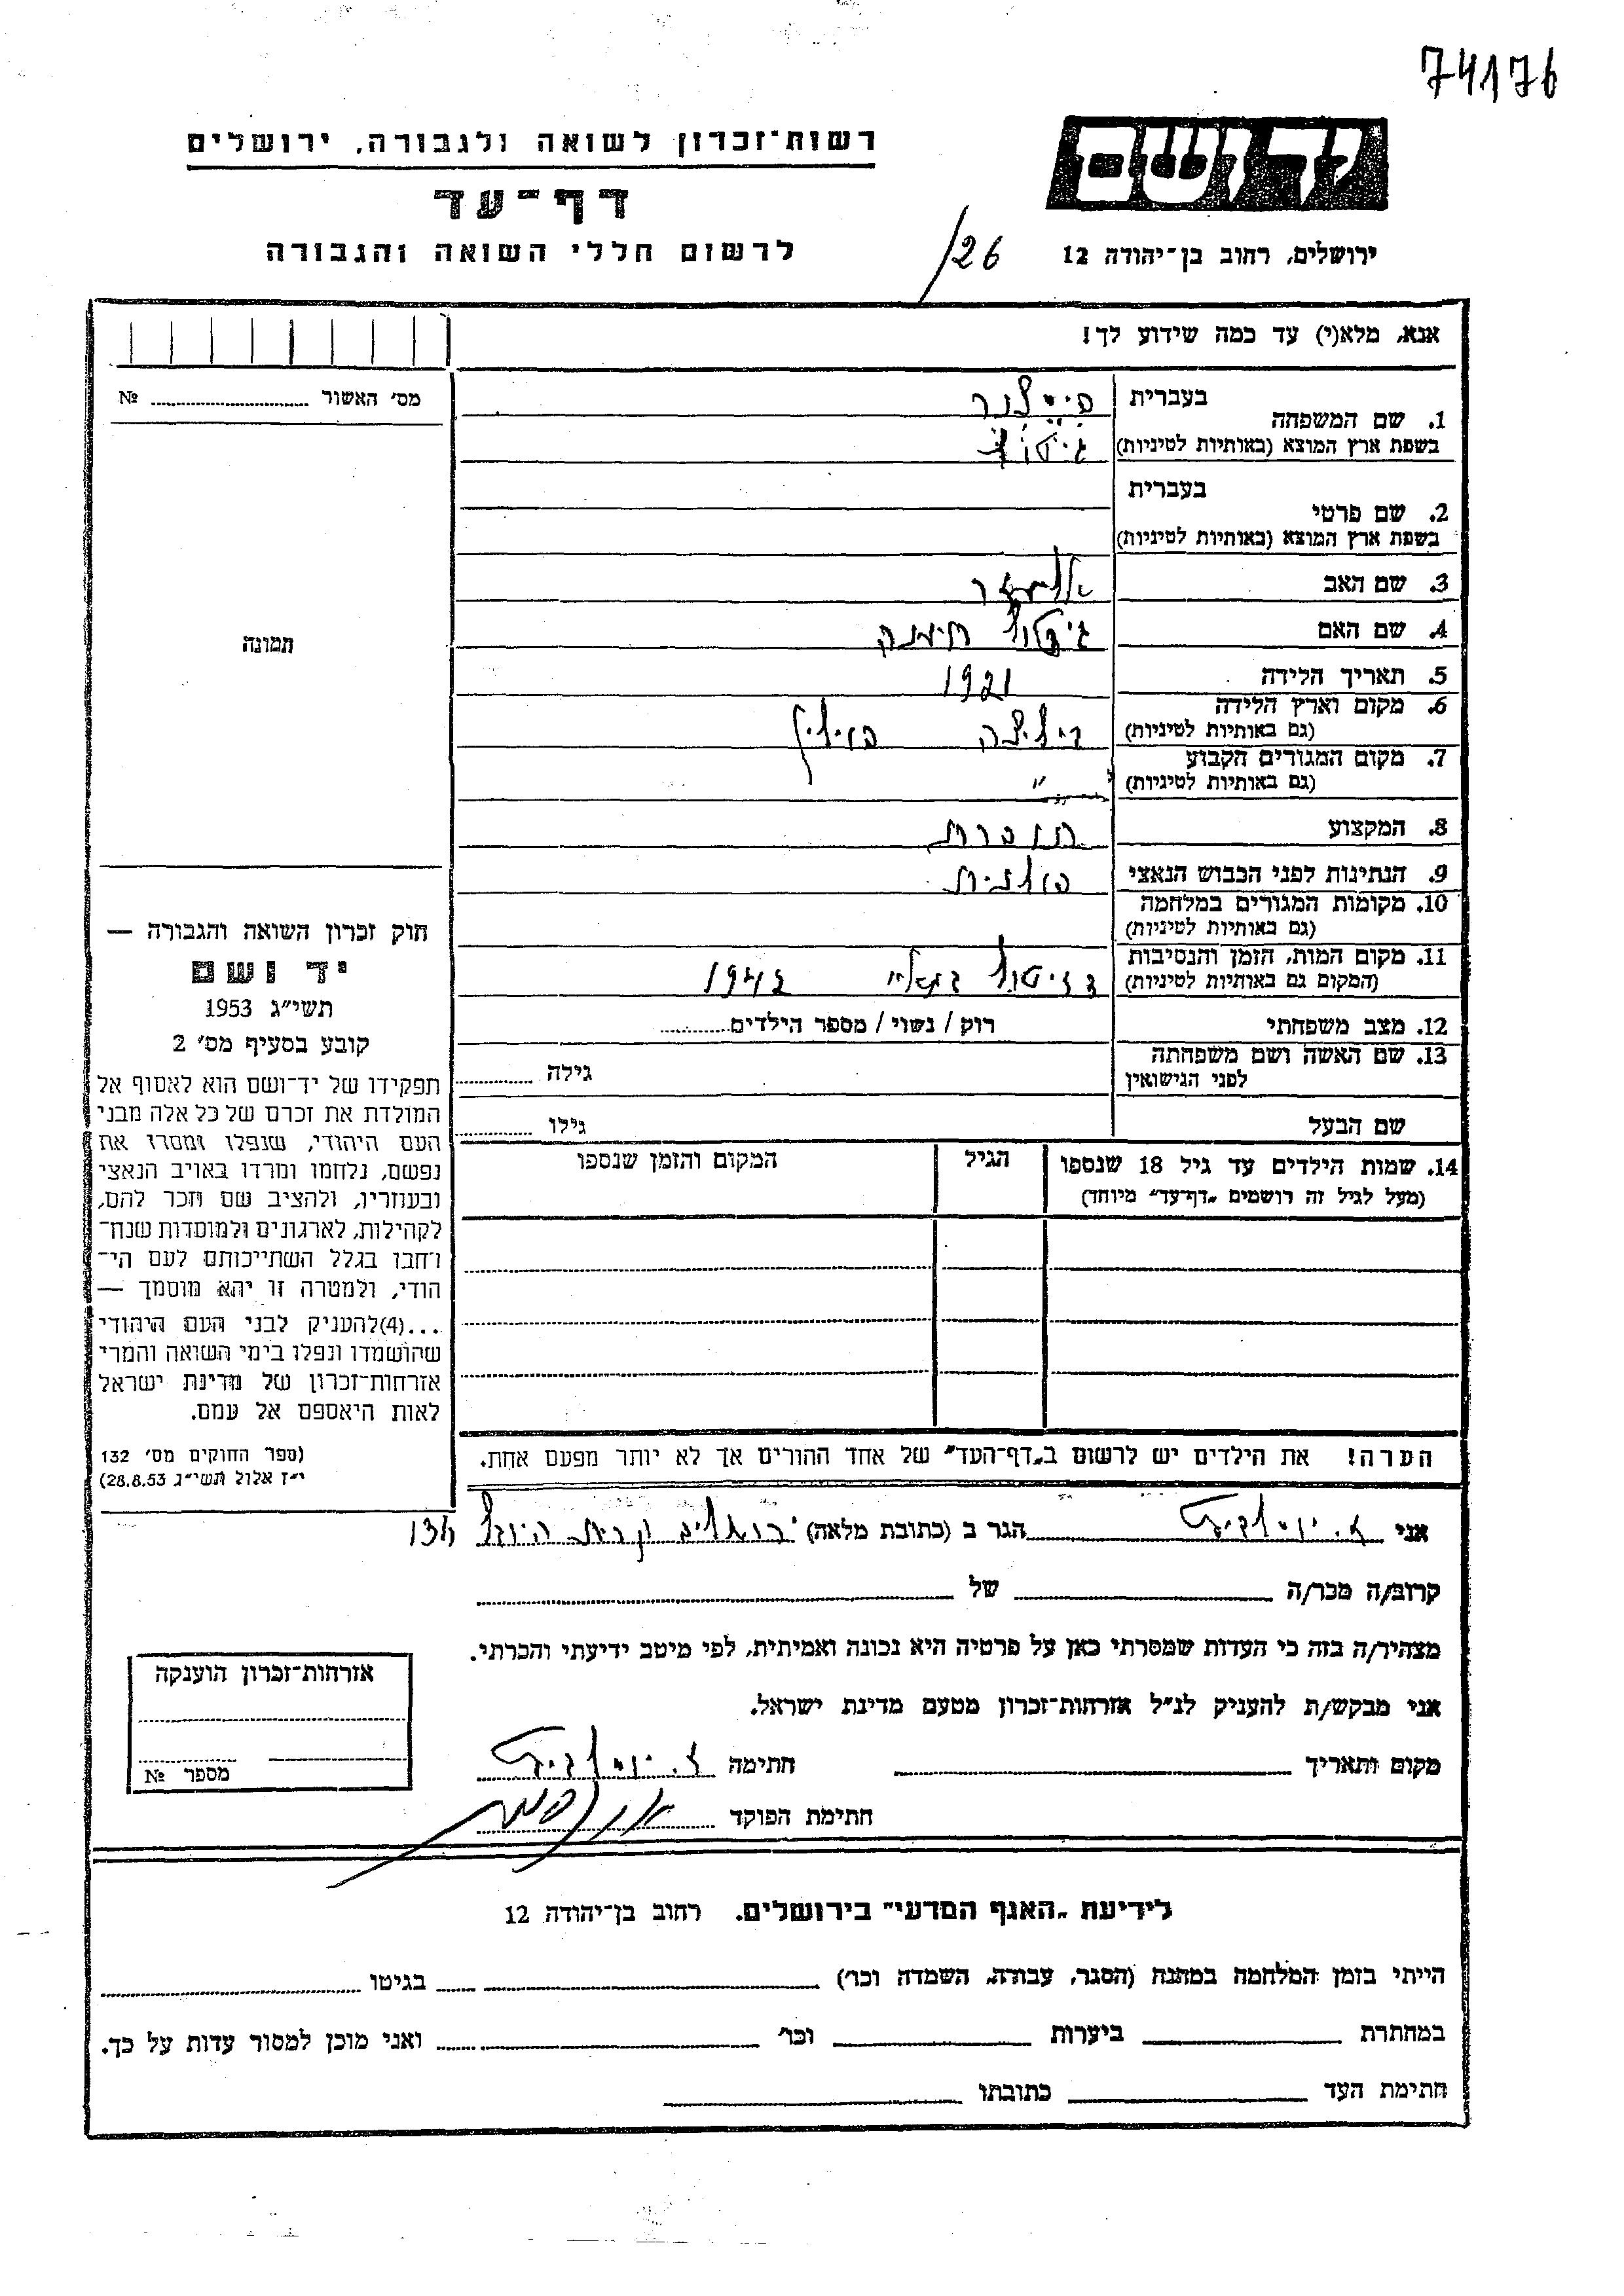 74176
יד ושם
רשות־זכרון לשואה ולגבורה, ירושלים
דף־עד
לרשום חללי השואה והגבורה
ירושלים, רחוב בן־יהודה 12
26/
אנא, מלא(י) עד כמה שידוע לך!
מס׳ האשור № 
תמונה
1. שם המשפחה
בעברית
בשפת ארץ המוצא (באותיות לטיניות)
2. שם פרטי
בעברית
בשפת ארץ המוצא (באותיות לטיניות)
3. שם האב אליעזר
4. שם האם
5. תאריך הלידה 1921
6. מקום וארץ הלידה פולין
(גם באותיות לטיניות)
7. מקום המגורים הקבוע -"-
(גם באותיות לטיניות)
8. המקצוע תופרת
9. הנתינות לפני הכבוש הנאצי פולנית
10. מקומות המגורים במלחמה
(גם באותיות לטיניות)
11. מקום המות, הזמן והנסיבות
(המקום גם באותיות לטיניות) 1942
12. מצב משפחתי רוק / נשוי / מספר הילדים
13. שם האשה ושם משפחתה
לפני הנישואין גילה
שם הבעל גילו
14. שמות הילדים עד גיל 18 שנספו הגיל המקום והזמן שנספו
(מעל לגיל זה רושמים „דף־עד״ מיוחד)
הערה! את הילדים יש לרשום ב„דף־העד״ של אחד ההורים אך לא יותר מפעם אחת.
חוק זכרון השואה והגבורה —
יד ושם
תשי״ג 1953
קובע בסעיף מס׳ 2
תפקידו של יד־ושם הוא לאסוף אל
המולדת את זכרם של כל אלה מבני
העם היהודי, שנפלו ומסרו את
נפשם, נלחמו ומרדו באויב הנאצי
ובעוזריו, ולהציב שם וזכר להם,
לקהילות, לארגונים ולמוסדות שנח־
רחבו בגלל השתייכותם לעם הי־
הודי, ולמטרה זו יהא מוסמך —
...(4)להעניק לבני העם היהודי
שהושמדו ונפלו בימי השואה והמרי
אזרחות־זכרון של מדינת ישראל
לאות היאספם אל עמם.
(ספר החוקים מס׳ 132
י״ז אלול תשי״ג 28.8.53)
אני הגר ב (כתובת מלאה) ירושלים קרית היובל 134
קרוב/ה מכר/ה של
מצהיר/ה בזה כי העדות שמסרתי כאן על פרטיה היא נכונה ואמיתית, לפי מיטב ידיעתי והכרתי.
אני מבקש/ת להעניק לנ״ל אזרחות־זכרון מטעם מדינת ישראל.
מקום ותאריך חתימה
חתימת הפוקד
אזרחות־זכרון הוענקה
מספר №
לידיעת „האגף המדעי״ בירושלים. רחוב בן־יהודה 12
הייתי בזמן המלחמה במחנה (הסגר, עבודה, השמדה וכו׳) בגיטו
במחתרת ביערות וכו׳ ואני מוכן למסור עדות על כך.
חתימת העד כתובתו